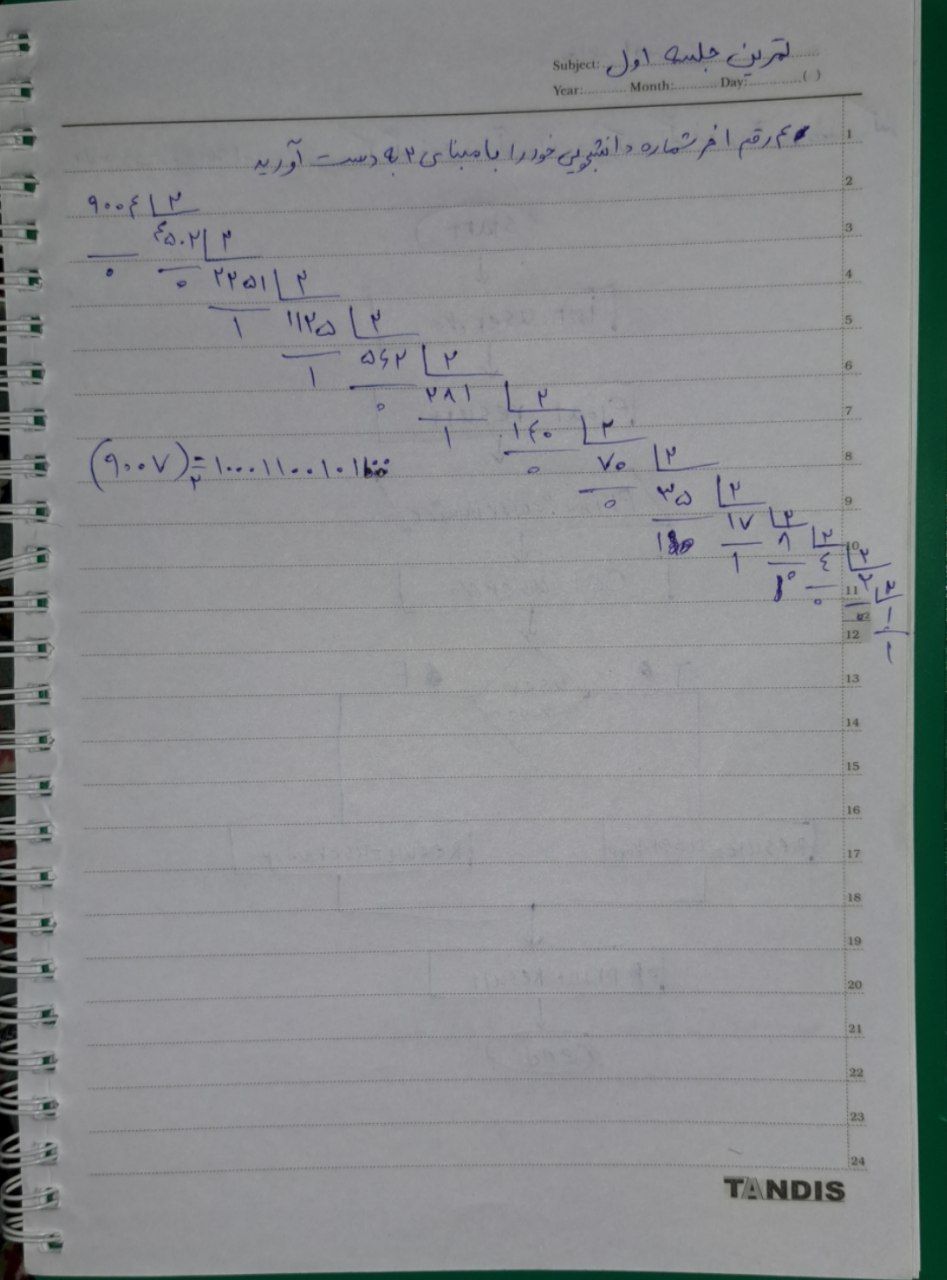 Subject: تمرین جلسه اول
Year: Month: Day: ( )
۴ رقم اخر شماره دانشجویی خود را با مبنای ۲ به دست آورید
۹۰۰۴ ۲
۴۵۰۲ ۲
۰ ۰ ۲۲۵۱ ۲
۱ ۱۱۲۵ ۲
۱ ۵۶۲ ۲
۰ ۲۸۱ ۲
۱ ۱۴۰ ۲
۰ ۷۰ ۲
(۹۰۰۷)۲ = ۱۰۰۰۱۱۰۰۱۰۱
۰ ۳۵ ۲
۱ ۱۷ ۲
۱ ۸ ۲
۰ ۴ ۲
۰ ۲ ۲
۰ ۱
۱
1
2
3
4
5
6
7
8
9
10
11
12
13
14
15
16
17
18
19
20
21
22
23
24
TANDIS